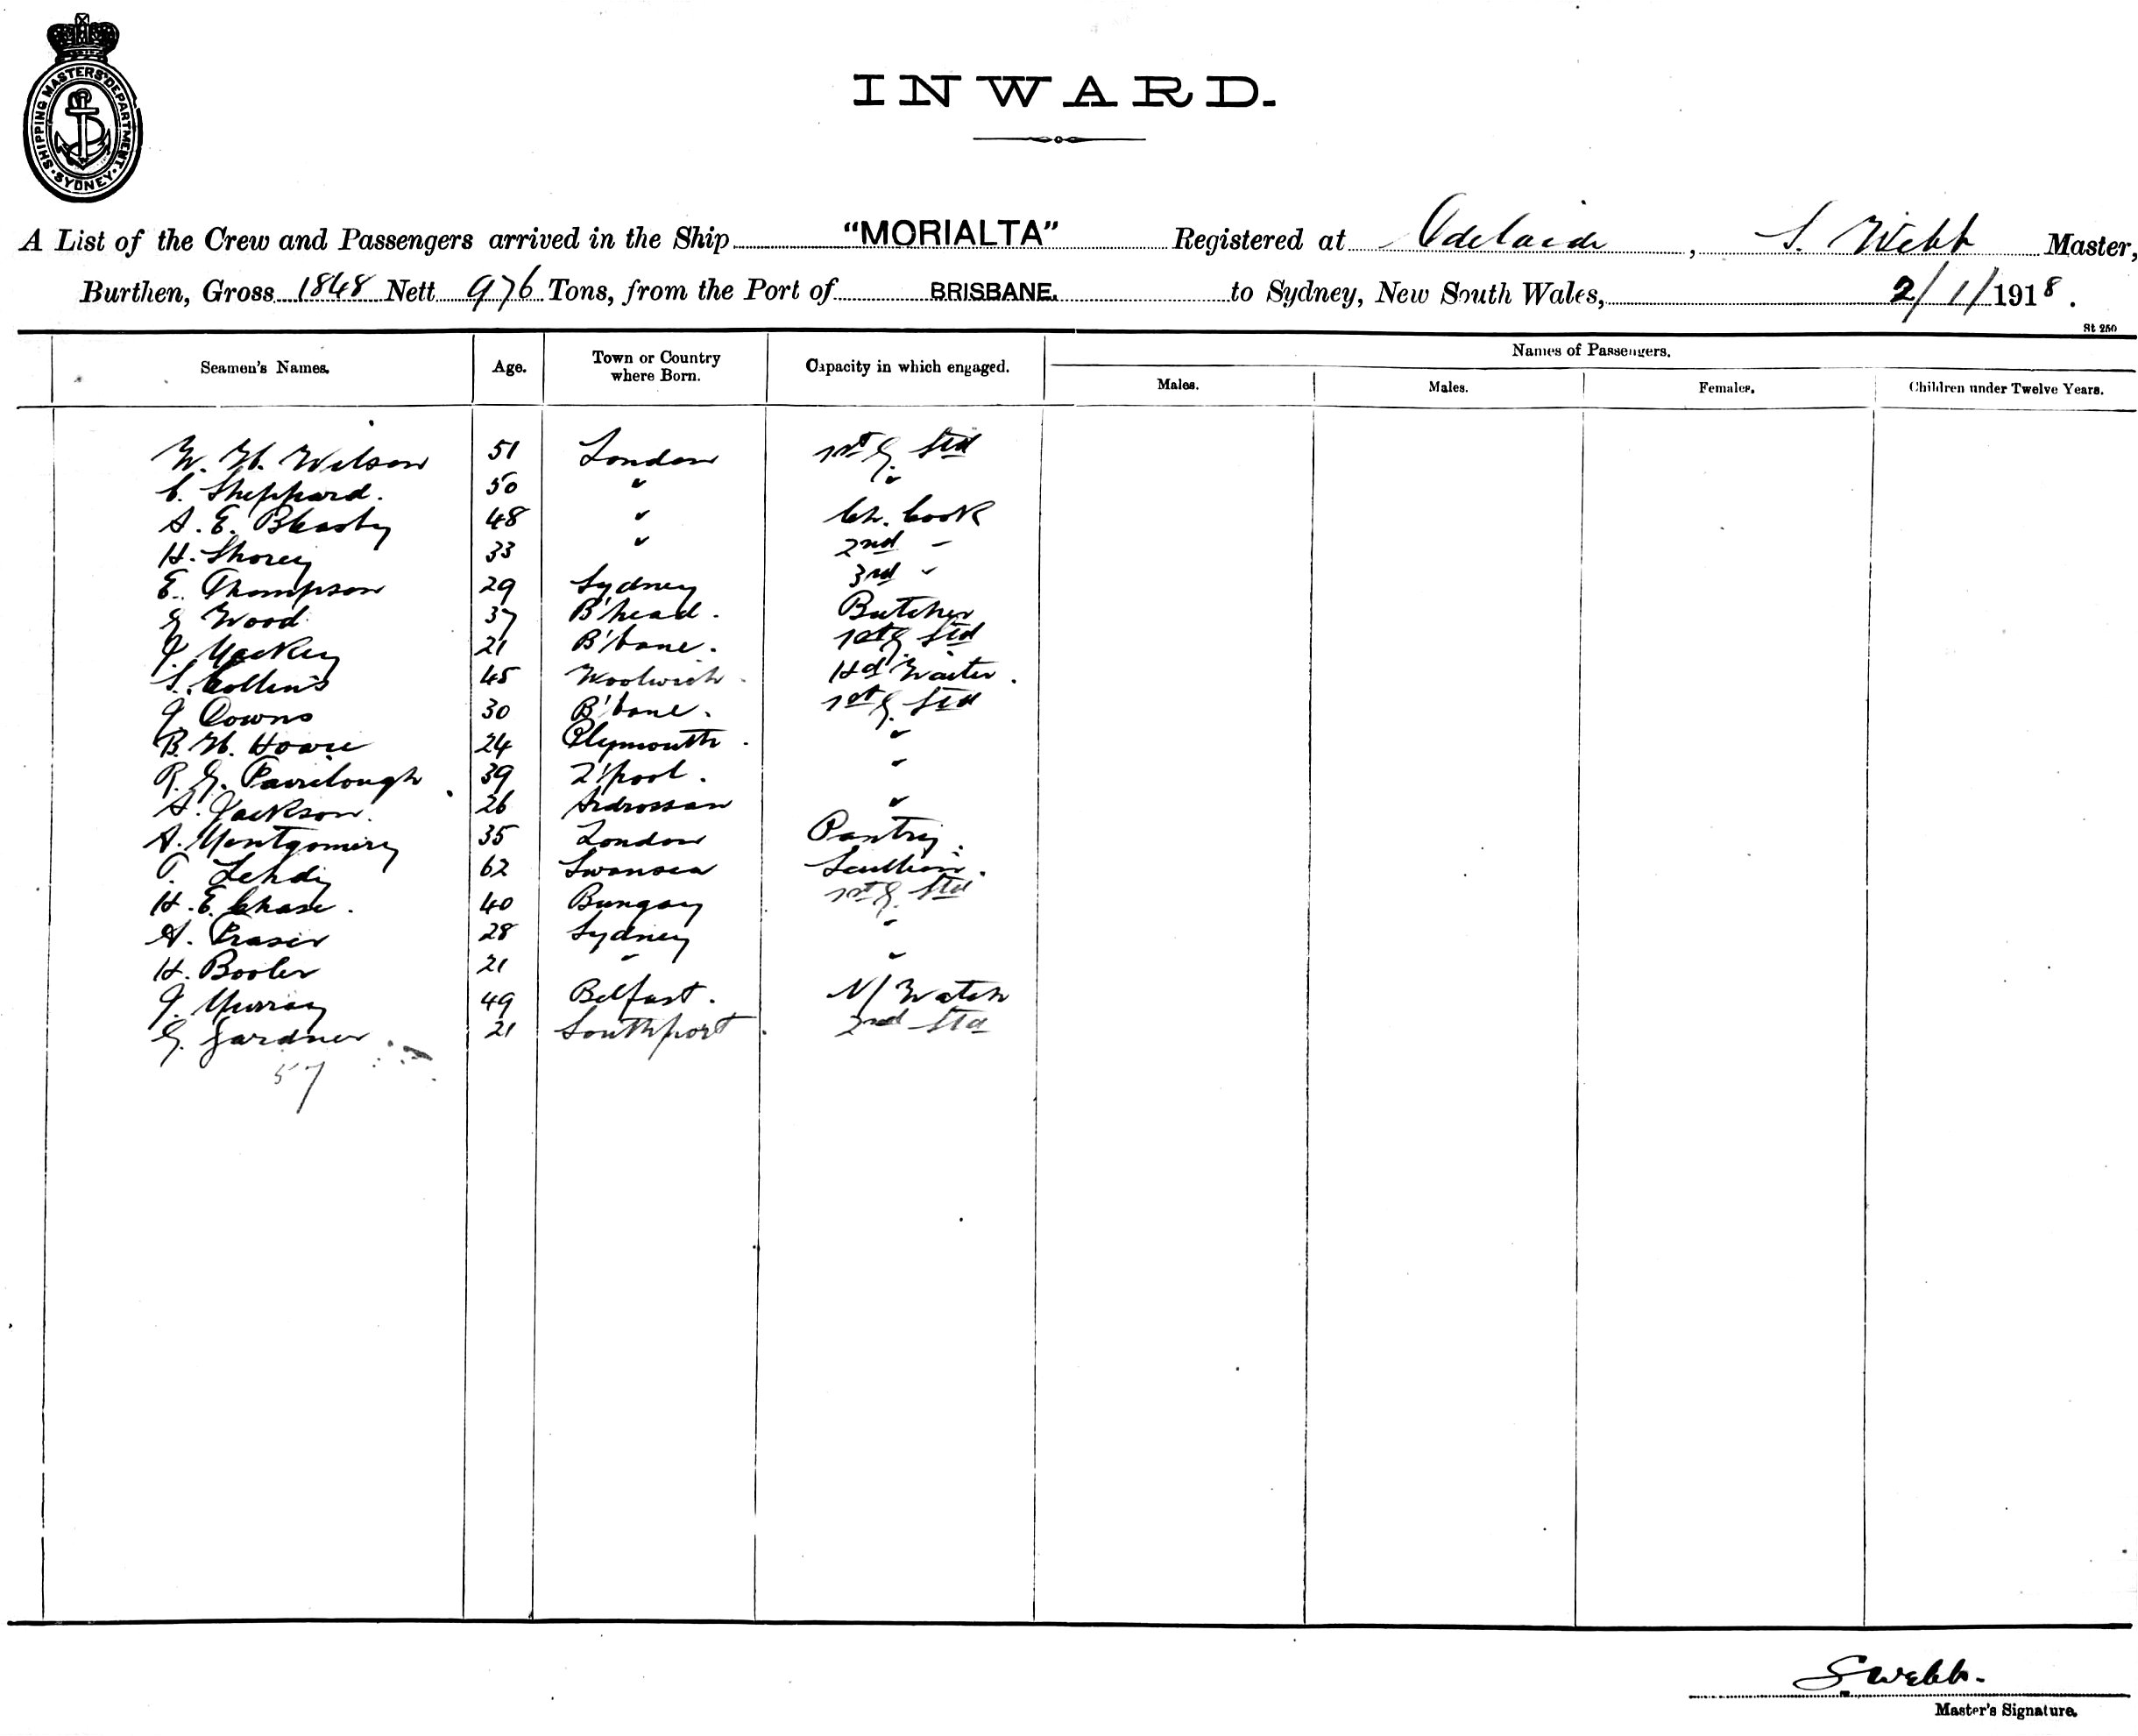 SHIPPING MASTERS' DEPARTMENT · SYDNEY ·
INWARD.
A List of the Crew and Passengers arrived in the Ship "MORIALTA" Registered at Adelaide, S. Webb Master,
Burthen, Gross 1848 Nett 976 Tons, from the Port of BRISBANE. to Sydney, New South Wales, 2/1/1918.
St 250
Seamen's Names. Age. Town or Country where Born. Capacity in which engaged. Names of Passengers.
Males. Males. Females. Children under Twelve Years.
W. H. Wilson 51 London 1st G. Std
C. Sheppard. 50 " "
A. E. Bleasby 48 " Ch. Cook
H. Shorey 33 " 2nd "
E. Thompson 29 Sydney 3rd "
G Wood 37 B'head. Butcher
J. Mackey 21 B'bane. 1st G Std
S. Collins 45 Woolwich. Hd Waiter.
J Downs 30 B'bane. 1st G. Std
B. H. Howie 24 Plymouth. "
R. G. Fairclough. 39 L'pool. "
A. Jackson. 26 Ardrossan "
A. Montgomery 35 London Pantry.
T. 62 Swansea Scullion.
H. E. Chase. 40 Bungay 1st G. Std
A. Fraser 28 Sydney "
H. Booler 21 " "
J. Murray 49 Belfast. N/ Watch
G. Gardner. 21 Southport. 2nd Std
57
S Webb.
Master's Signature.